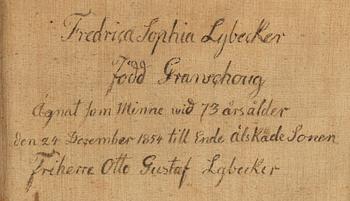 Fredrica Sophia Lybecker
Född Granschoug
Ägnat som Minne wid 73 årsålder
den 24 Dezember 1854 till Ende älskade Sonen
Friherre Otto Gustaf Lybecker